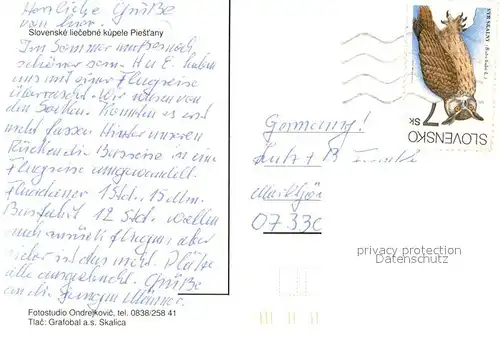 Herzliche Grüße
von hier.
Slovenské liečebné kúpele Piešťany
Im Sommer muß es noch
schöner sein. H u E haben
uns mit einer Flugreise
überrascht. Wir waren von
den Socken. Konnten es erst
nicht fassen. Hinter unseren
Rücken die Busreise in eine
Flugreise umgewandelt.
Flugdauer 1 Std. 15 Min.
Busfahrt 12 Std. wollen
auch zurück fliegen, aber
leider ist das nicht. Plätze
alle ausgebucht. Grüße
an die jungen Männer.
Fotostudio Ondrejkovič, tel. 0838/258 41
Tlač: Grafobal a.s. Skalica
VÝR SKALNÝ
(Bubo bubo L.)
7 Sk
SLOVENSKO
Germany!
Lutz + B
0733
privacy protection
Datenschutz